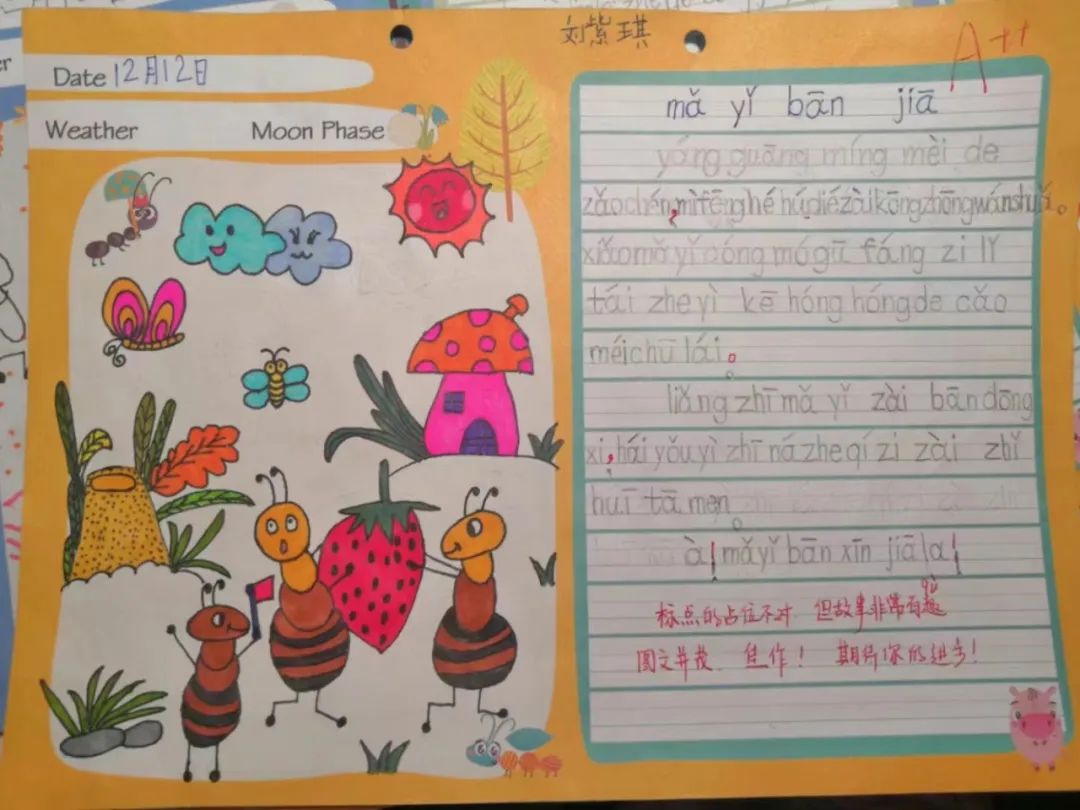 刘紫琪
A++
Date 12月12日
Weather Moon Phase
mǎ yǐ bān jiā
yáng guāng míng mèi de
zǎo chén, mì fēng hé hú dié zài kōng zhōng wán shuǎ。
xiǎo mǎ yǐ cóng mó gū fáng zi lǐ
tái zhe yì kē hóng hóng de cǎo
méi chū lái。
liǎng zhī mǎ yǐ zài bān dōng
xi, hái yǒu yì zhī ná zhe qí zi zài zhǐ
huī tā men。
à! mǎ yǐ bān xīn jiā la!
qù
标点的占位不对. 但故事非常有趣
图文并茂. 佳作! 期待你的进步!